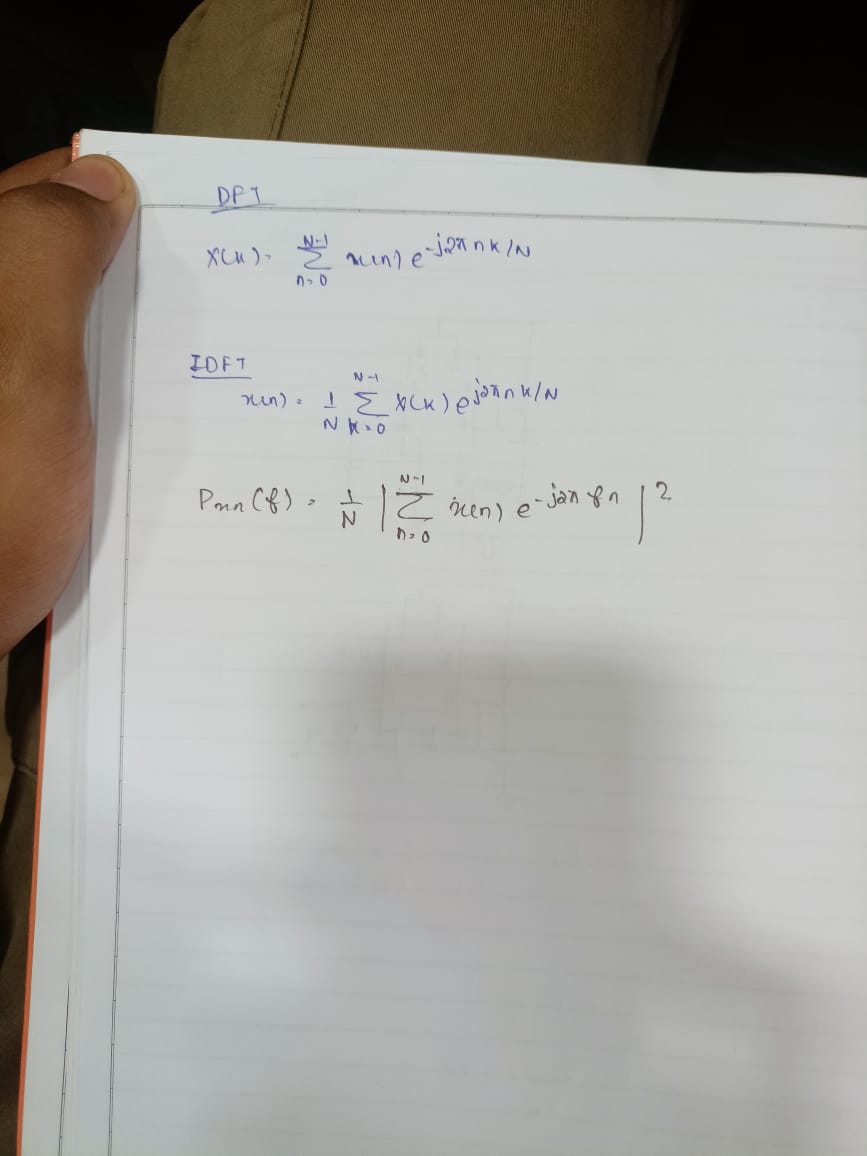 DFT
X(k) = N-1 Σ n=0 x(n) e^-j2π nk/N
IDFT
x(n) = 1/N N-1 Σ k=0 X(k) e^j2π nk/N
Pxx(f) = 1/N | N-1 Σ n=0 x(n) e^-j2π fn |^2